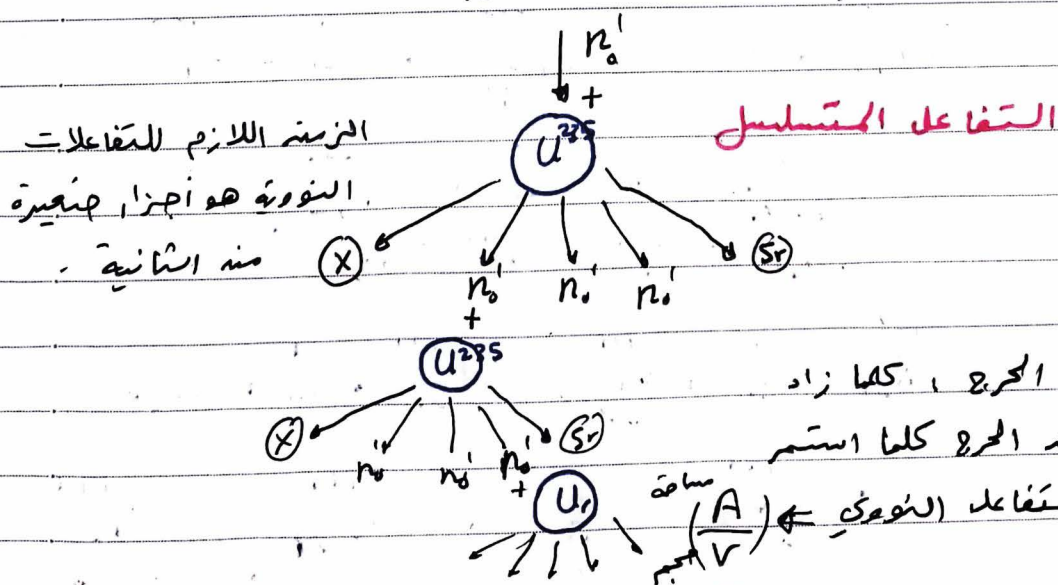 التفاعل المتسلسل
n₀¹
+
U²³⁵
الزمن اللازم للتفاعلات
النووية هو أجزاء صغيرة
من الثانية .
X
n₀¹ n₀¹ n₀¹
Sr
+
U²³⁵
X
n₀¹ n₀¹ n₀¹
Sr
+
U
الحرج ، كلما زاد
الحرج كلما استمر
التفاعل النووي ⇐ (A/V)
مساحة
حجم